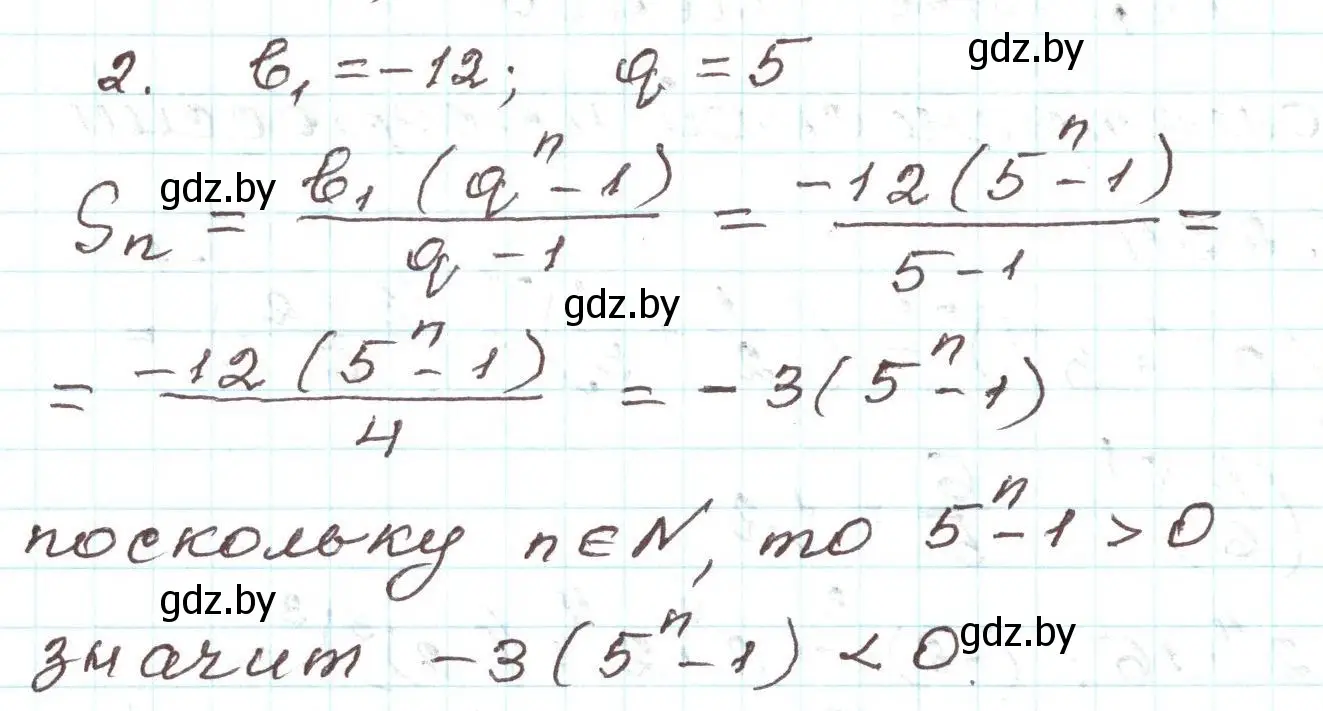 2. b₁ = -12; q = 5 gdz.by
gdz.by Sₙ = b₁ (qⁿ - 1) / (q - 1) = -12 (5ⁿ - 1) / (5 - 1) =
gdz.by
= -12 (5ⁿ - 1) / 4 = - 3 (5ⁿ - 1)
поскольку n ∈ N, то 5ⁿ - 1 > 0
gdz.by
значит -3 (5ⁿ - 1) < 0. gdz.by